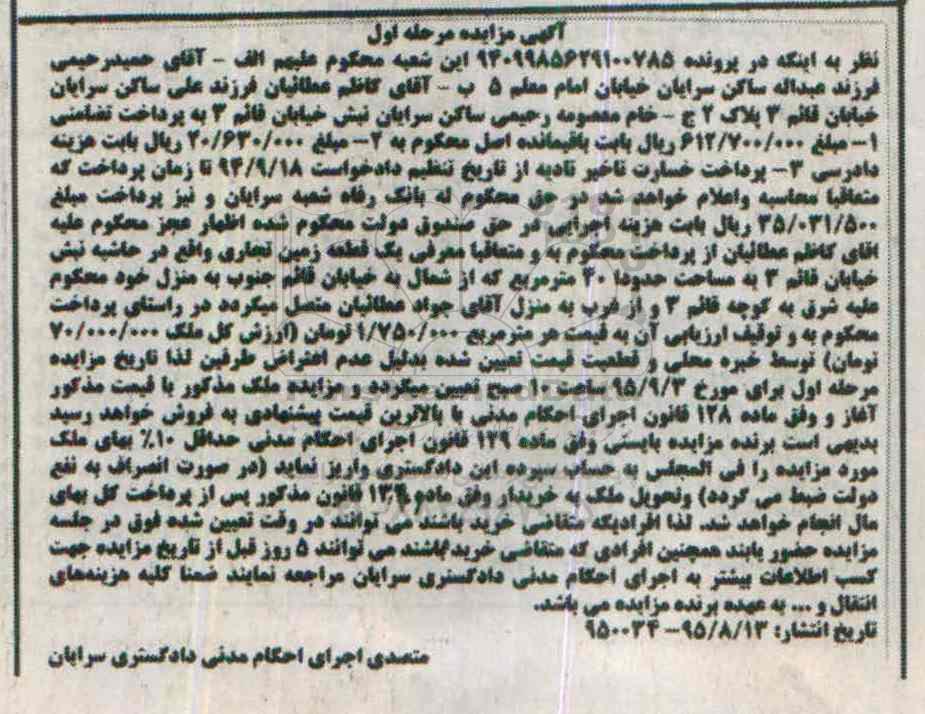 آگهی مزایده مرحله اول
نظر به اینکه در پرونده ۹۴۰۹۹۸۵۶۲۹۱۰۰۷۸۵ این شعبه محکوم علیهم الف - آقای حمیدرحیمی
فرزند عبداله ساکن سرایان خیابان امام معلم ۵ ب - آقای کاظم عطائیان فرزند علی ساکن سرایان
خیابان قائم ۳ پلاک ۲ ج - خام معصومه رحیمی ساکن سرایان نبش خیابان قائم ۳ به پرداخت تضامنی
۱- مبلغ ۶۱۲/۷۰۰/۰۰۰ ریال بابت باقیمانده اصل محکوم به ۲- مبلغ ۲۰/۶۳۰/۰۰۰ ریال بابت هزینه
دادرسی ۳- پرداخت خسارت تاخیر تادیه از تاریخ تنظیم دادخواست ۹۴/۹/۱۸ تا زمان پرداخت که
متعاقبا محاسبه واعلام خواهد شد در حق محکوم له بانک رفاه شعبه سرایان و نیز پرداخت مبلغ
۳۵/۰۳۱/۵۰۰ ریال بابت هزینه اجرایی در حق صندوق دولت محکوم شده اظهار عجز محکوم علیه
اقای کاظم عطائیان از پرداخت محکوم به و متعاقبا معرفی یک قطعه زمین تجاری واقع در حاشیه نبش
خیابان قائم ۳ به مساحت حدودا ۴۰ مترمربع که از شمال به خیابان قائم جنوب به منزل خود محکوم
علیه شرق به کوچه قائم ۳ و از غرب به منزل آقای جواد عطائیان متصل میگردد در راستای پرداخت
محکوم به و توقیف ارزیابی آن به قیمت هر مترمربع ۱/۷۵۰/۰۰۰ تومان (ارزش کل ملک ۷۰/۰۰۰/۰۰۰
تومان) توسط خبره محلی و قطعیت قیمت تعیین شده بدلیل عدم اعتراض طرفین لذا تاریخ مزایده
مرحله اول برای مورخ ۹۵/۹/۳ ساعت ۱۰ صبح تعیین میگردد و مزایده ملک مذکور با قیمت مذکور
آغاز و وفق ماده ۱۲۸ قانون اجرای احکام مدنی با بالاترین قیمت پیشنهادی به فروش خواهد رسید
بدیهی است برنده مزایده بایستی وفق ماده ۱۲۹ قانون اجرای احکام مدنی حداقل ۱۰٪ بهای ملک
مورد مزایده را فی المجلس به حساب سپرده این دادگستری واریز نماید (در صورت انصراف به نفع
دولت ضبط می گردد) وتحویل ملک به خریدار وفق ماده قانون مذکور پس از پرداخت کل بهای
مال انجام خواهد شد. لذا افرادیکه متقاضی خرید باشند می توانند در وقت تعیین شده فوق در جلسه
مزایده حضور یابند همچنین افرادی که متقاضی خرید باشند می توانند ۵ روز قبل از تاریخ مزایده جهت
کسب اطلاعات بیشتر به اجرای احکام مدنی دادگستری سرایان مراجعه نمایند ضمنا کلیه هزینه‌های
انتقال و ... به عهده برنده مزایده می باشد.
تاریخ انتشار: ۹۵/۸/۱۳- ۹۵۰۰۳۴
متصدی اجرای احکام مدنی دادگستری سرایان